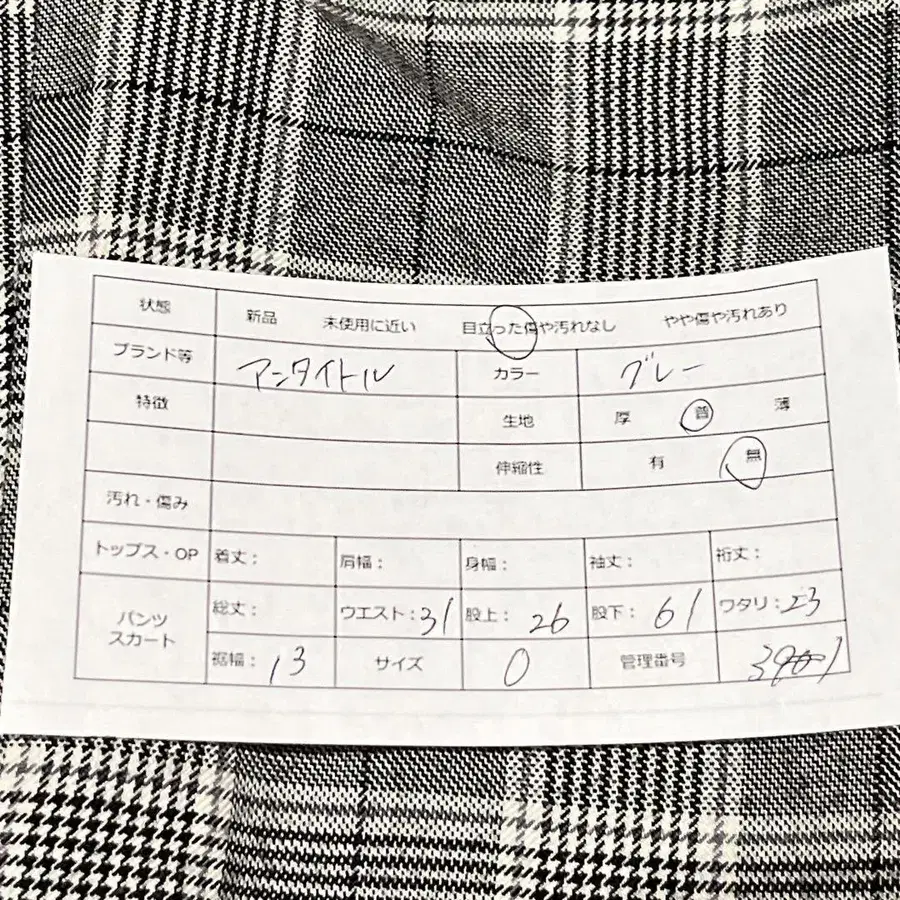 状態 新品 未使用に近い 目立った傷や汚れなし やや傷や汚れあり
ブランド等 アンタイトル カラー グレー
特徴 生地 厚 普 薄
伸縮性 有 無
汚れ・傷み
トップス・OP 着丈: 肩幅: 身幅: 袖丈: 裄丈:
パンツ スカート
総丈: ウエスト:31 股上:26 股下:61 ワタリ:23
裾幅:13 サイズ 0 管理番号